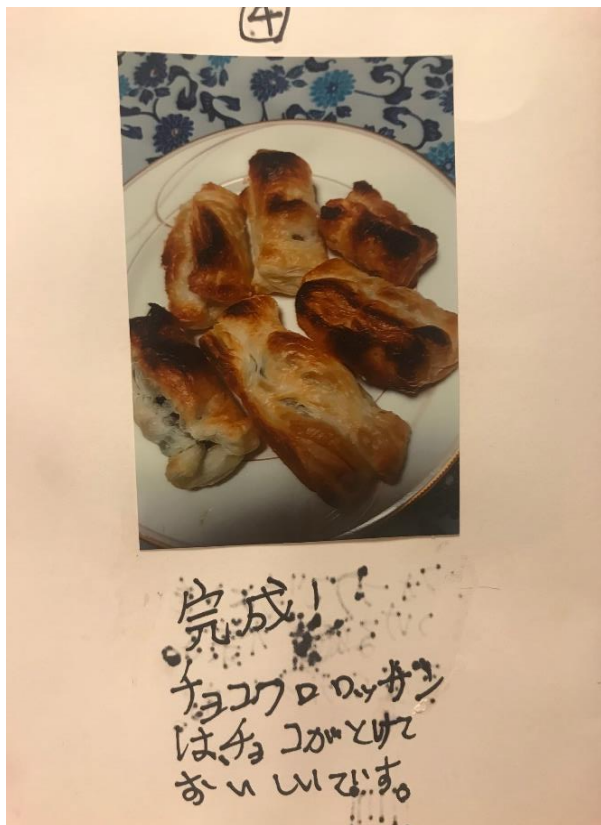 4
完成!
チョコクロワッサン
は、チョコがとけて
おいしいです。